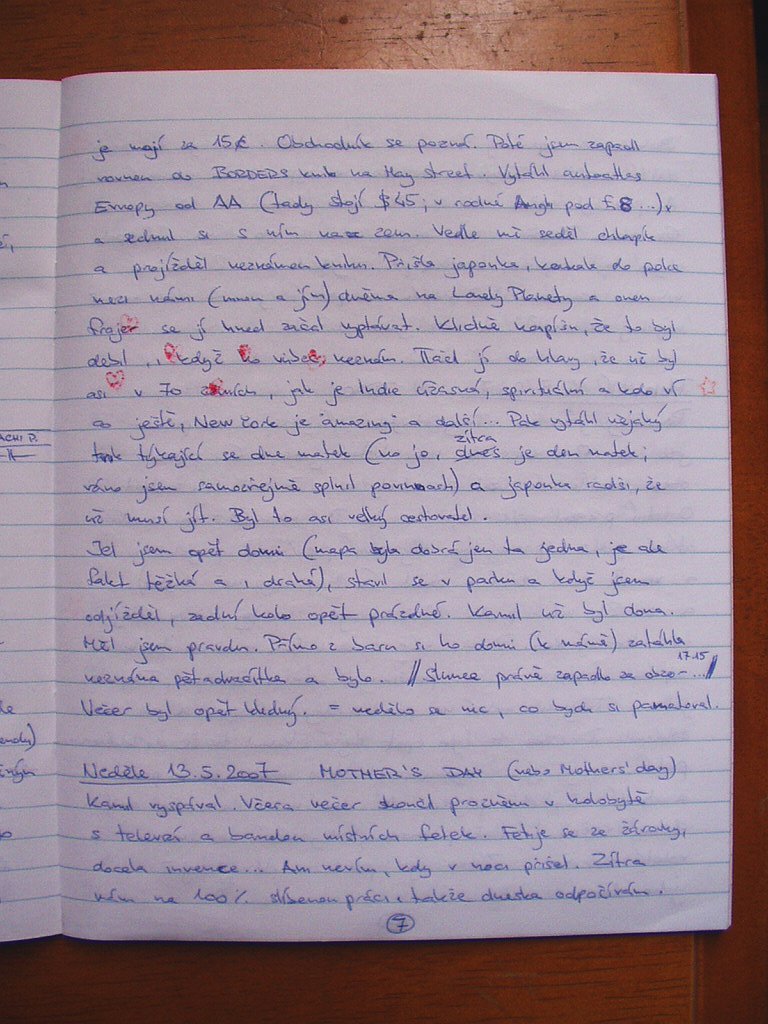 je mají za 15€. Obchodník se pozná. Poté jsem zapadl
rovnou do BORDERS knih na Hay street. Vytáhl autoatlas
Evropy od AA (tady stojí $45; v rodné Anglii pod £8...)
a sednul si s ním na zem. Vedle mě seděl chlapík
a projížděl neznámou knihu. Přišla japonka, koukala do police
mezi námi (mnou a jím) dněna na Lonely Planety a onen
frajer se jí hned začal vyptávat. Klidně napíšu, že to byl
debil, i když ho vůbec neznám. Tlačil jí do hlavy, že už byl
asi v 70 zemích, jak je Indie úžasná, spirituální a kdo ví
co ještě, New York je "amazing" a další... Pak vytáhl nějaký
týkající se dne matek (no jo, dnes zítra je den matek;
ráno jsem samozřejmě splnil povinnosti) a japonka radši, že
už musí jít. Byl to asi velký cestovatel.
Jel jsem opět domů (mapa byla dobrá jen ta jedna, je ale
fakt těžká a i drahá), stavil se v parku a když jsem
odjížděl, zadní kolo opět prázdné. Kamil už byl doma.
Měl jsem pravdu. Přímo z baru si ho domů (k mámě) zatáhla
neznámá pětadvacítka a bylo. // Slunce právě zapadlo za obzor... 17.15 //
Večer byl opět klidný. = nedělo se nic, co bych si pamatoval.
Neděle 13.5.2007 MOTHER'S DAY (nebo Mothers' day)
Kamil vyspával. Včera večer skončil pročněnu v kolobytě
s televizí a bandou místních fetek. Fetuje se ze žárovky,
docela invence... Ani nevím, kdy v noci přišel. Zítra
mám na 100% slíbenou práci, takže dneska odpočívám.
7
ACHI P.